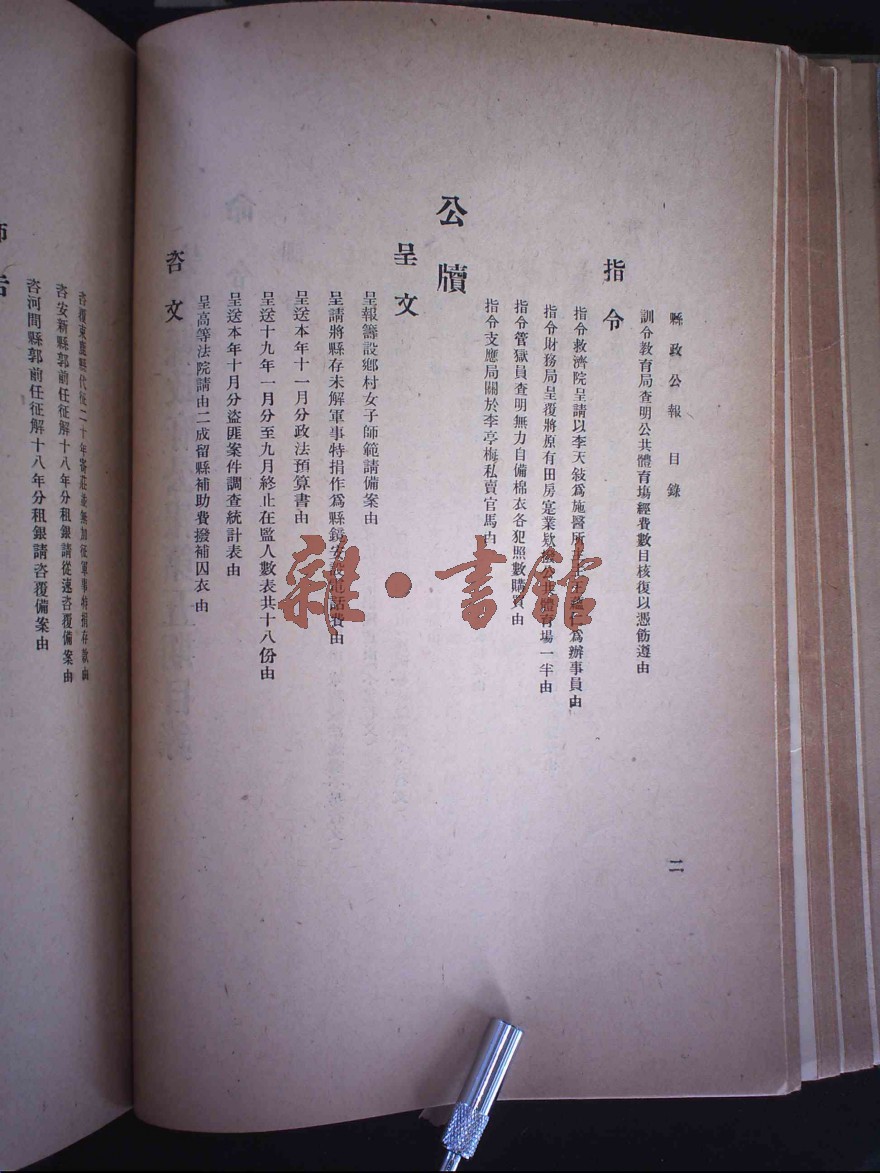 縣政公報 目錄 二
訓令教育局查明公共體育場經費數目核復以憑飭遵由
指令
指令救濟院呈請以李天敍爲施醫所 爲辦事員由
指令財務局呈覆將原有田房寔業欵 公共體育場一半由
指令管獄員查明無力自備棉衣各犯照數購買由
指令支應局關於李亭梅私賣官馬由
公牘
呈文
呈報籌設鄉村女子師範請備案由
呈請將縣存未解軍事特捐作爲縣鎮安設電話費由
呈送本年十一月分政法預算書由
呈送十九年一月分至九月終止在監人數表共十八份由
呈送本年十月分盜匪案件調查統計表由
呈高等法院請由二成留縣補助費撥補囚衣由
咨文
咨覆束鹿縣代征二十年寄莊 無加征軍事特捐存款由
咨安新縣郭前任征解十八年分租銀請從速咨覆備案由
咨河間縣郭前任征解十八年分租銀請咨覆備案由
雜·書館